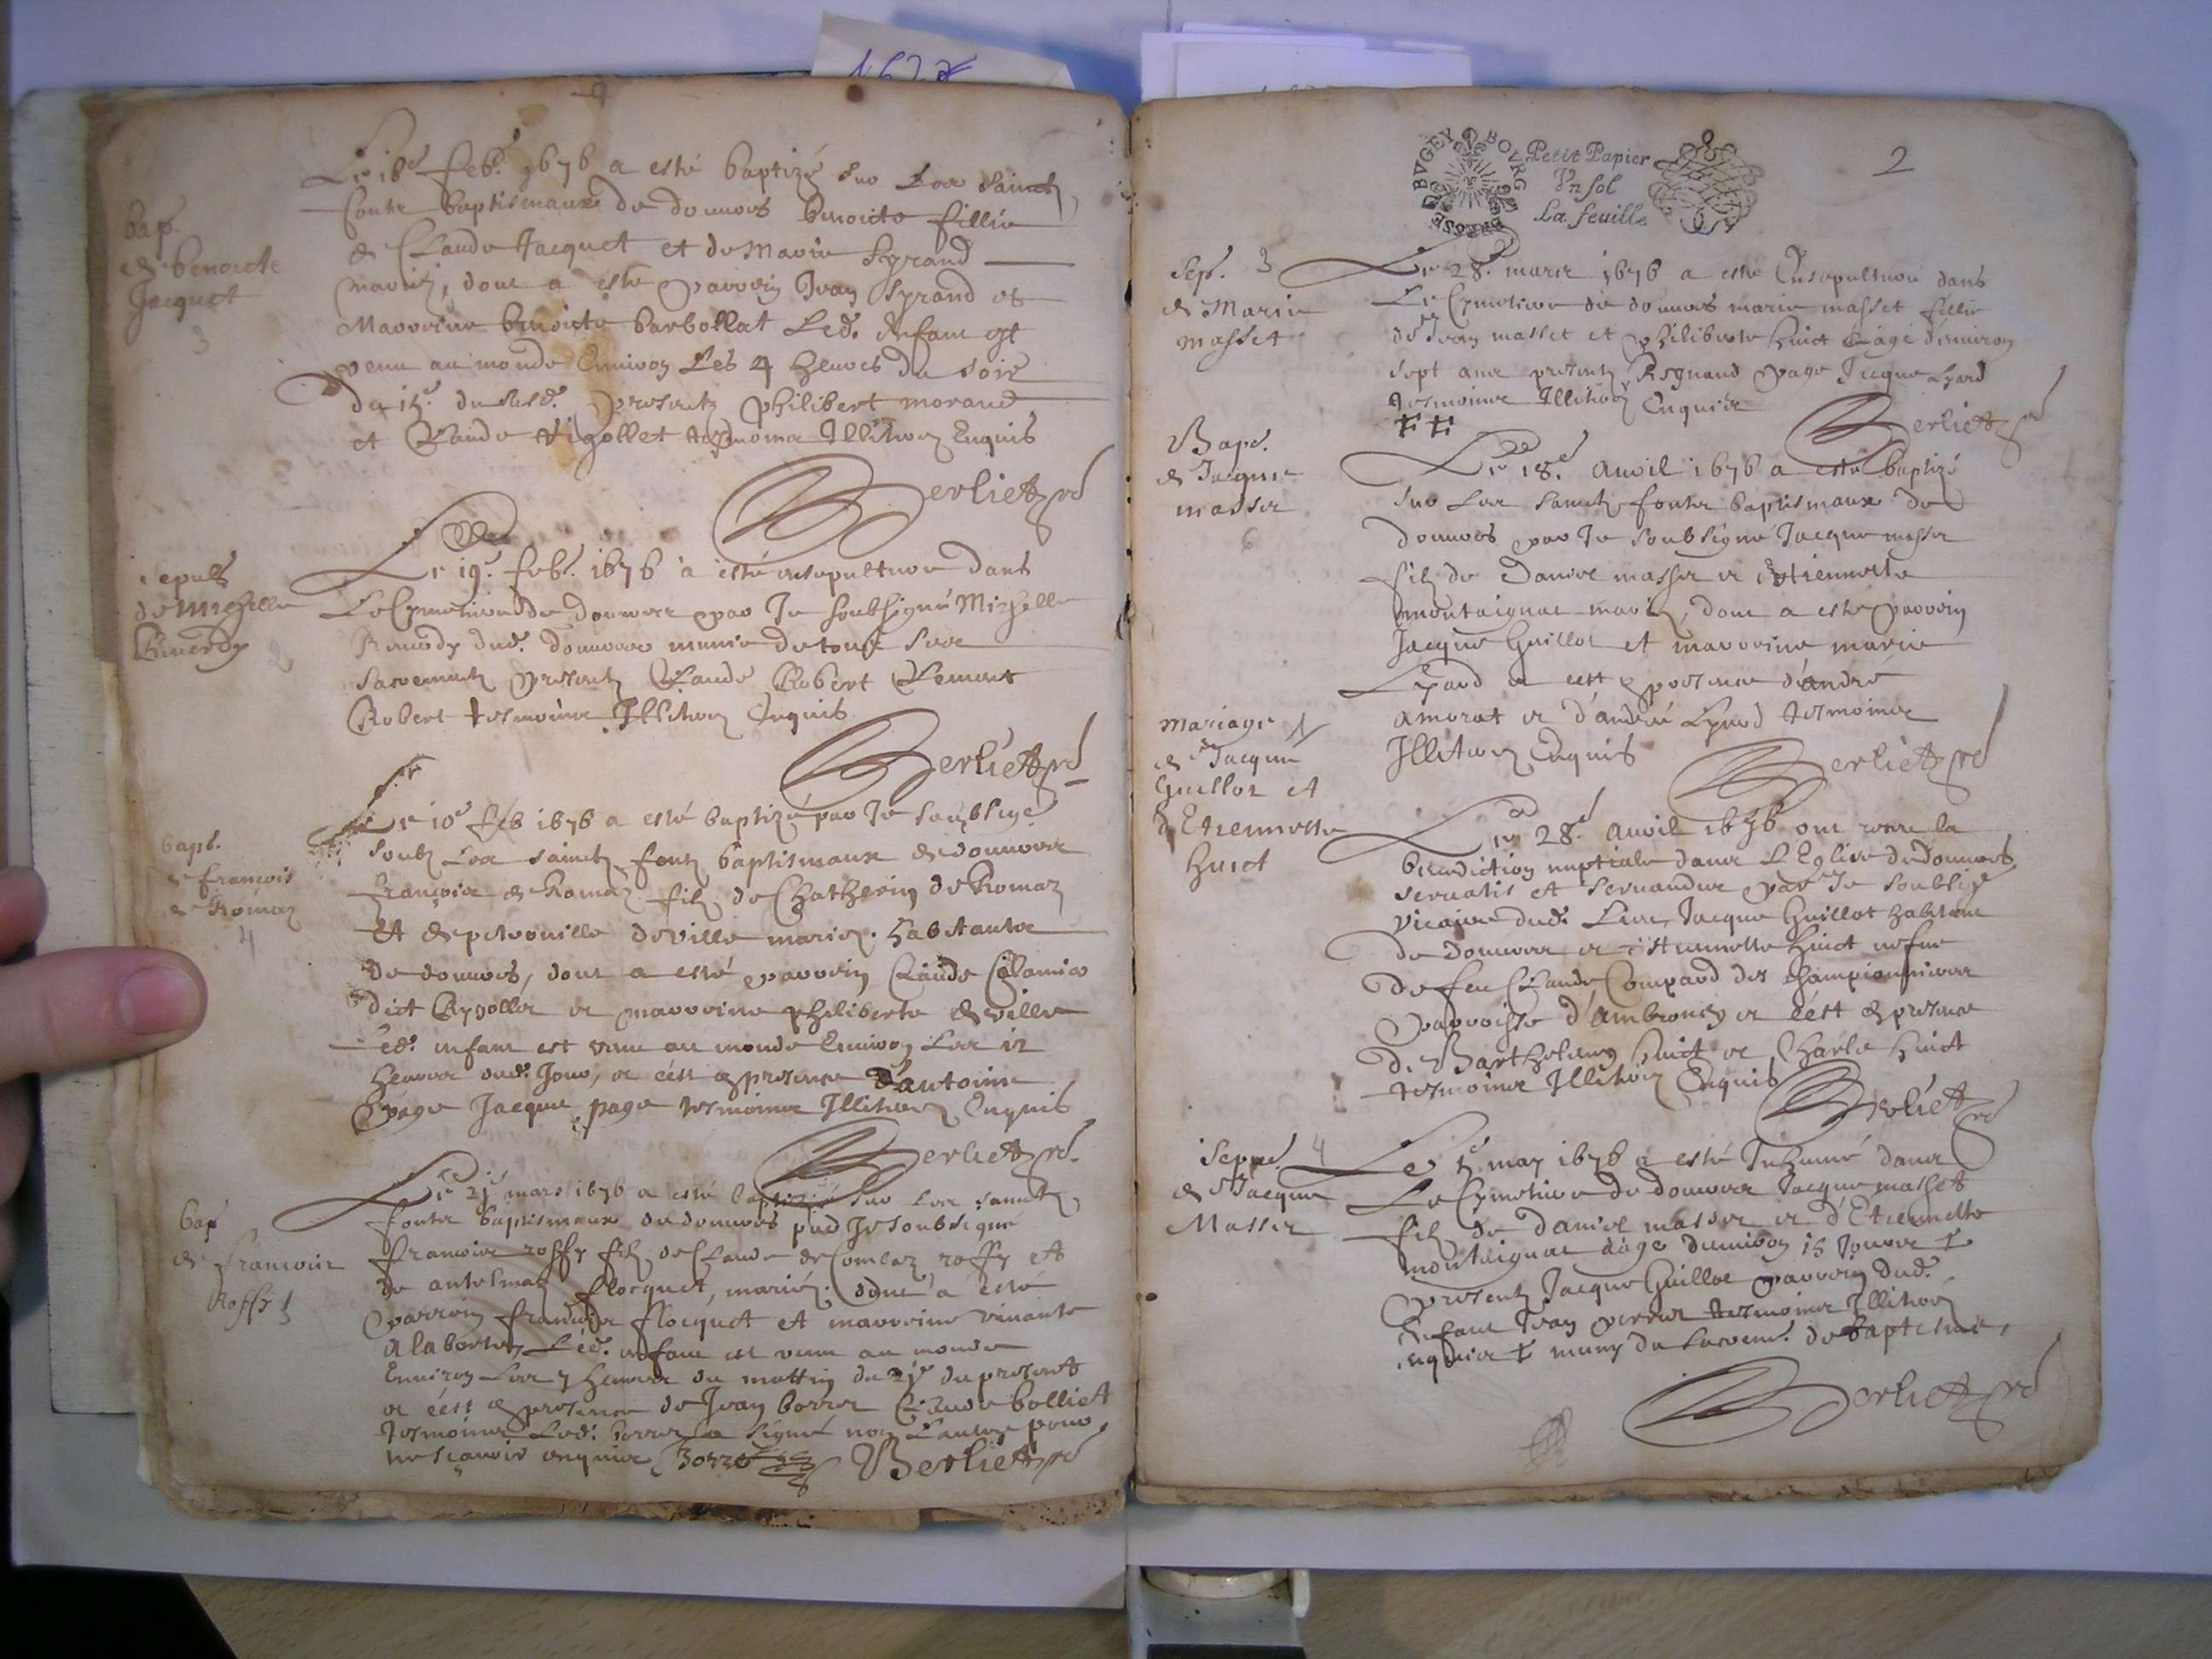 1676
Le 16e feb. 1676 a esté baptizé sur Les Sainctz
fontz baptismaux de douvres benoicte fillie
de Claude Jacquet et de Marie Syrand
mariez, dont a esté parrein Jean Syrand et
Marreine benoicte barbollat Led. Enfant est
venu au monde Environ Les 4 heures du soir
du 15e. dususd. presentz philibert morand
et Claude tesmoins Illitérez Enquis
Berliet
bap.
de benoicte
Jacquet
3
Le 19e. feb. 1676 a esté ensepulturé dans
Le Cymetiere de douvres par Je soubsigné Michelle
dud. douvres munie de tous Ses
sacrements presentz Claude Robert Clement
Robert tesmoins Illitérez Enquis
Berliet
sepult
de Michelle
2
Le 10e feb 1676 a esté baptizé par Je soubsigé
soubz Les sainctz fontz baptismaux de douvres
françois de Romaz filz de Chatherin de Romaz
Et de petronille deville mariez. habitantz
de douvres, dont a esté parrein Claude
dict et marreine philiberte deville
Led. enfant est venu au monde Environ Les 12
heures dud. Jour, et c'est en presence d'antoine
page Jacque page tesmoins Illitérez Enquis
Berliet
bapt.
de francois
de Romaz
4
Le 21e mars 1676 a esté baptizé sur Les sainctz
fontz baptismaux de douvres par Je soubsigné
francois roffy filz de Claude de Combaz roffy et
de antelmaz flocquet, mariez. dont a esté
parrein francois flocquet et marreine
Led. enfant est venu au monde
Environ Les 7 heures du mattin du 21e du present
et c'est en presence de Jean borret Claude bolliet
tesmoins Led. borret a signé non L'autre pour
ne sçavoir enquis Borret Berliet
bap
de francois
Roffy
2
BUGEY BOURG
BRESSE
Petit Papier
Un sol
La feuille
Le 28e. mars 1676 a esté Ensepulturé dans
Le Cymetiere de douvres marie masset fillie
de Jean masset et philiberte huict aagé d'environ
sept ans presentz Reynaud page Jacque Lyard
tesmoins Illitérez Enquis
Berliet
Sep. 3
de Marie
masset
Le 18e. Avril 1676 a esté baptizé
sur Les sainctz fontz baptismaux de
douvres par Je soubsigné Jacque masset
filz de Daniel masset et Etiennette
montaignat mariez, dont a esté parrein
Jacque Guillot et marreine marie
Lyard et c'est en presence d'andré
amorat et d'andré Lyard tesmoins
Illitérez Enquis
Berliet
Bapt.
de Jacque
masset
6
Le 28e. Avril 1676 ont receu la
benediction nuptiale dans L'Eglise de douvres
servatis et servandis par Je soubsigé
vicaire dud. Lieu, Jacque Guillot habitant
de douvres et Etiennette huict vefve
de feu Claude Compard des championnieres
parroisse d'Ambronay et c'est en presence
de Barthelemy huict et Charle huict
tesmoins Illitérez Enquis
Berliet
mariage
de Jacque
Guillot et
d'Etiennette
huict
Le may 1676 a esté Inhumé dans
Le Cymetiere de douvres Jacque masset
filz de daniel masset et d'Etiennette
montaignat aagé d'environ 15 Jours
presentz Jacque Guillot parrein dud.
Enfant Jean perret tesmoins Illitérez
enquis muny du sacrem. de baptesme,
Berliet
Sepul. 4
de Jacque
Masset